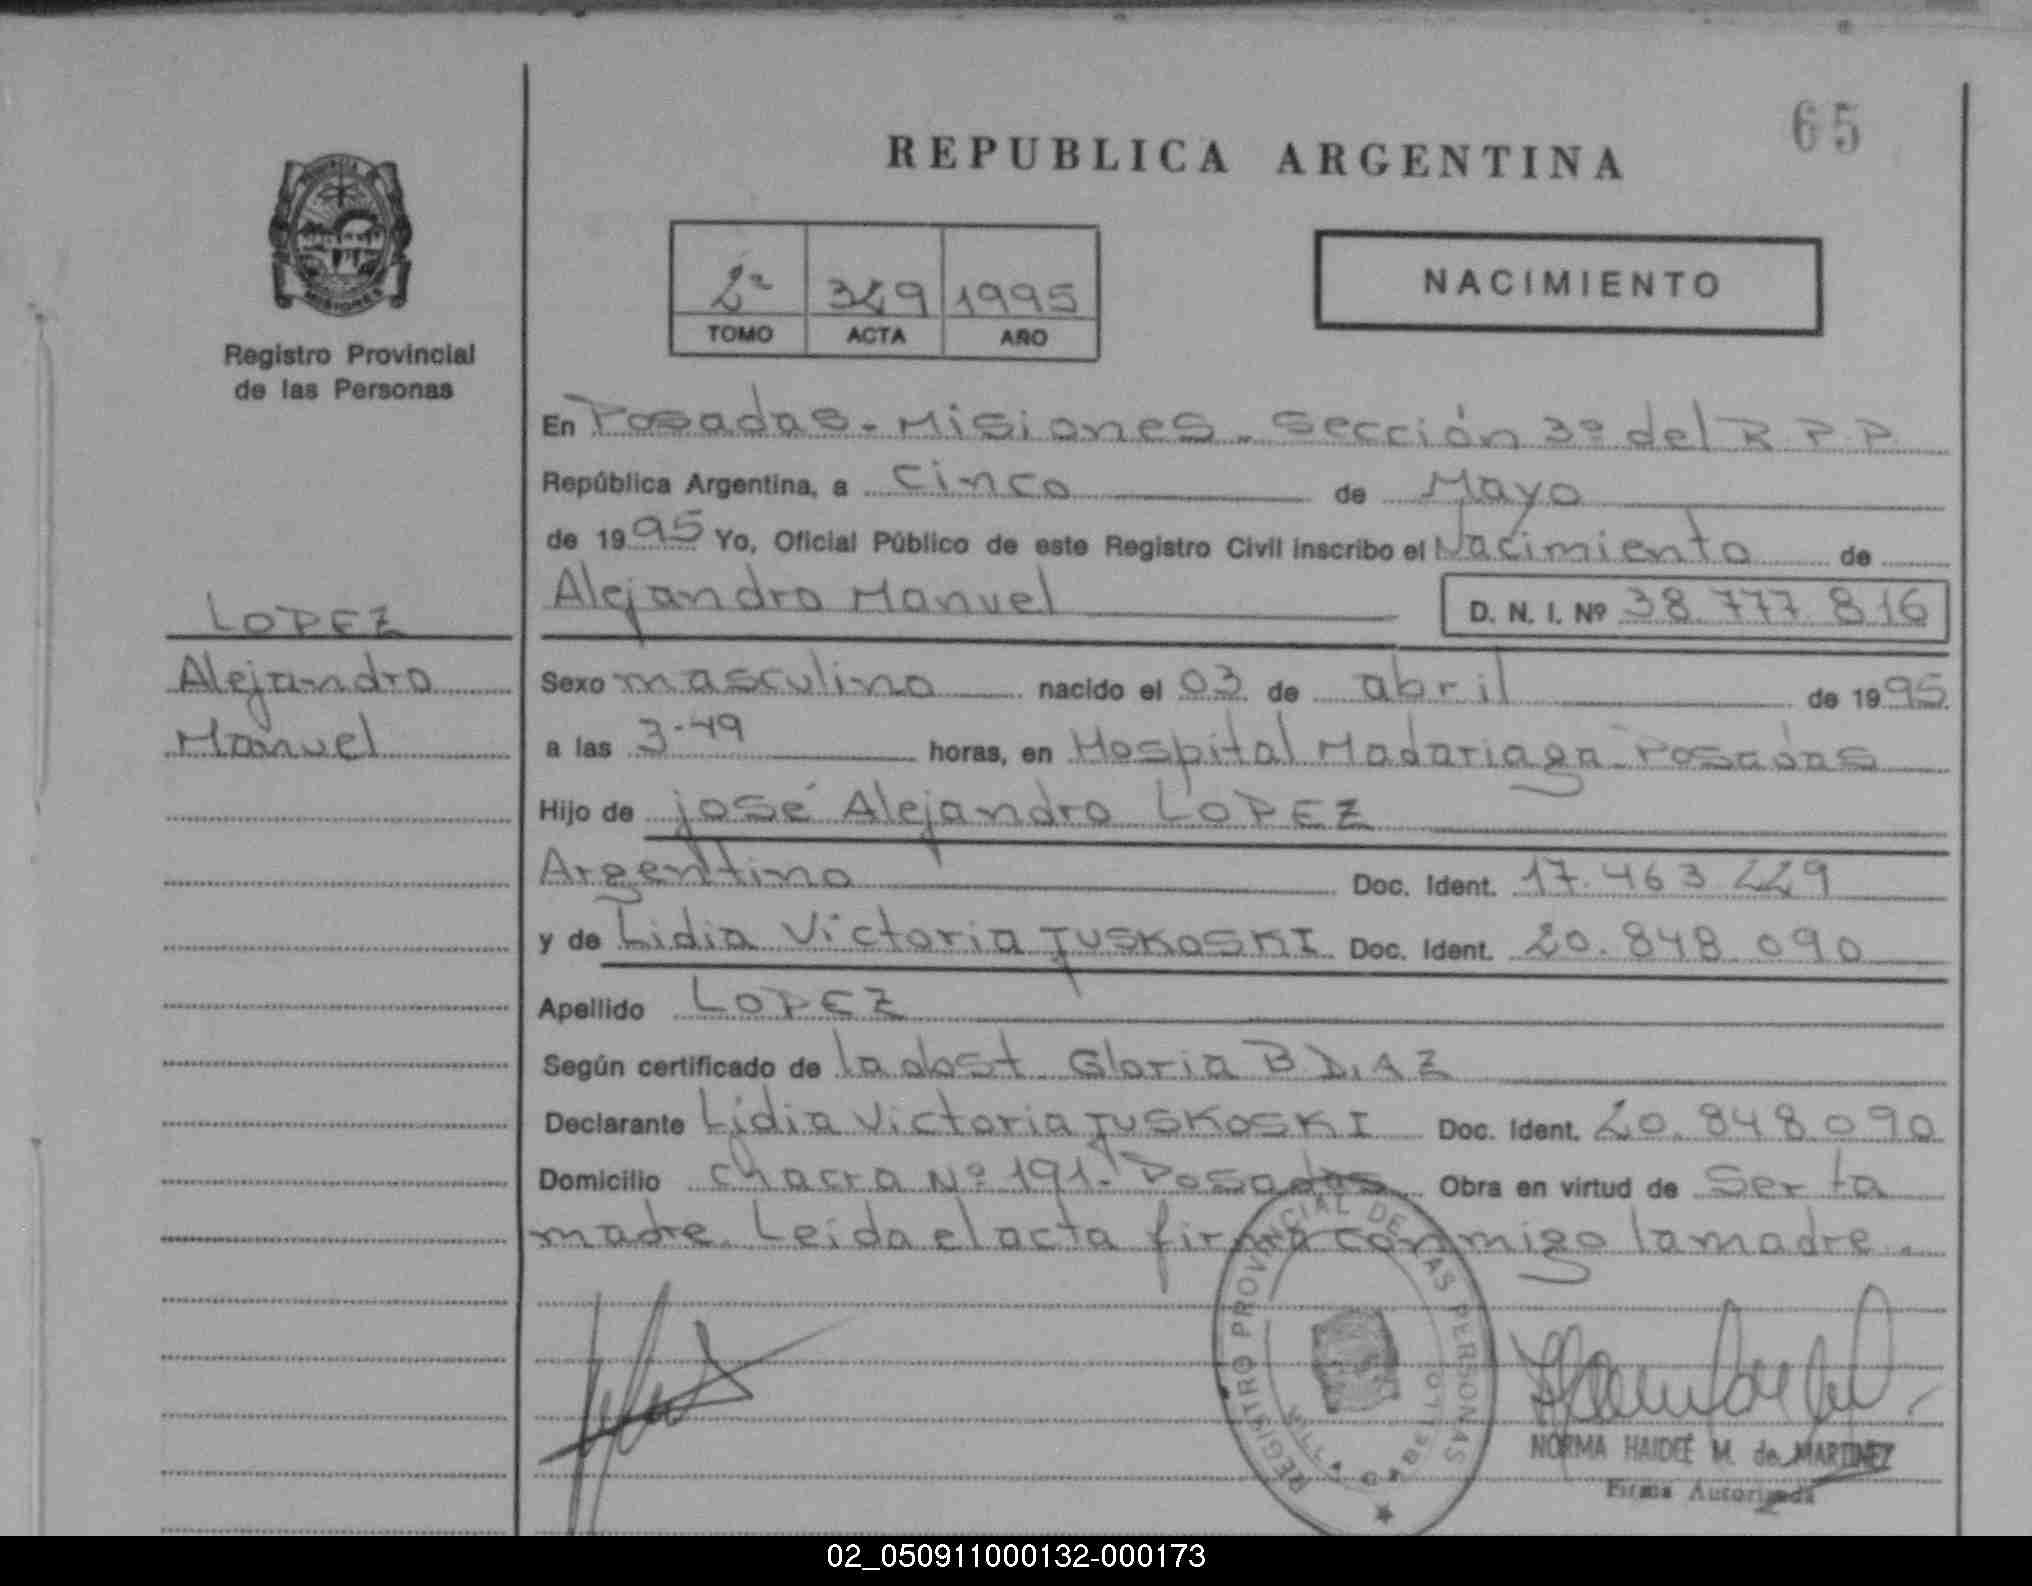 65
REPUBLICA ARGENTINA
PROVINCIA DE
MISIONES
Registro Provincial
de las Personas
2º 329 1995
TOMO ACTA AÑO
NACIMIENTO
En Posadas - Misiones - Sección 3º del R.P.P.
República Argentina, a cinco de Mayo
de 1995 Yo, Oficial Público de este Registro Civil inscribo el Nacimiento de
Alejandro Manuel D. N. I. Nº 38.777.816
LOPEZ
Alejandro
Manuel
Sexo masculino nacido el 03 de abril de 1995
a las 3-49 horas, en Hospital Madariaga - Posadas
Hijo de josé Alejandro LOPEZ
Argentino Doc. Ident. 17.463.229
y de Lidia Victoria TUSKOSKI Doc. Ident. 20.848.090
Apellido LOPEZ
Según certificado de la obst. Gloria B DIAZ
Declarante Lidia Victoria TUSKOSKI Doc. Ident. 20.848.090
Domicilio chacra Nº 191.- Posadas Obra en virtud de Ser la
madre. Leida el acta firma conmigo la madre.
REGISTRO PROVINCIAL DE LAS PERSONAS
VILLA CABELLO
NORMA HAIDEÉ M. de MARTINEZ
Firma Autorizada
02_050911000132-000173